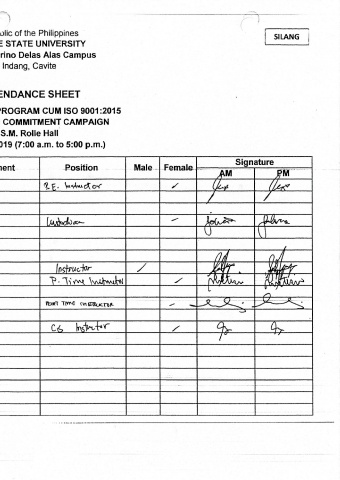 ublic of the Philippines
SILANG
E STATE UNIVERSITY
erino Delas Alas Campus
Indang, Cavite
ENDANCE SHEET
PROGRAM CUM ISO 9001:2015
COMMITMENT CAMPAIGN
S.M. Rolle Hall
019 (7:00 a.m. to 5:00 p.m.)
ment Position Male Female Signature
AM PM
P.E. Instructor
Instructor
P. Time Instructor
PART TIME INSTRUCTOR
CS Instructor